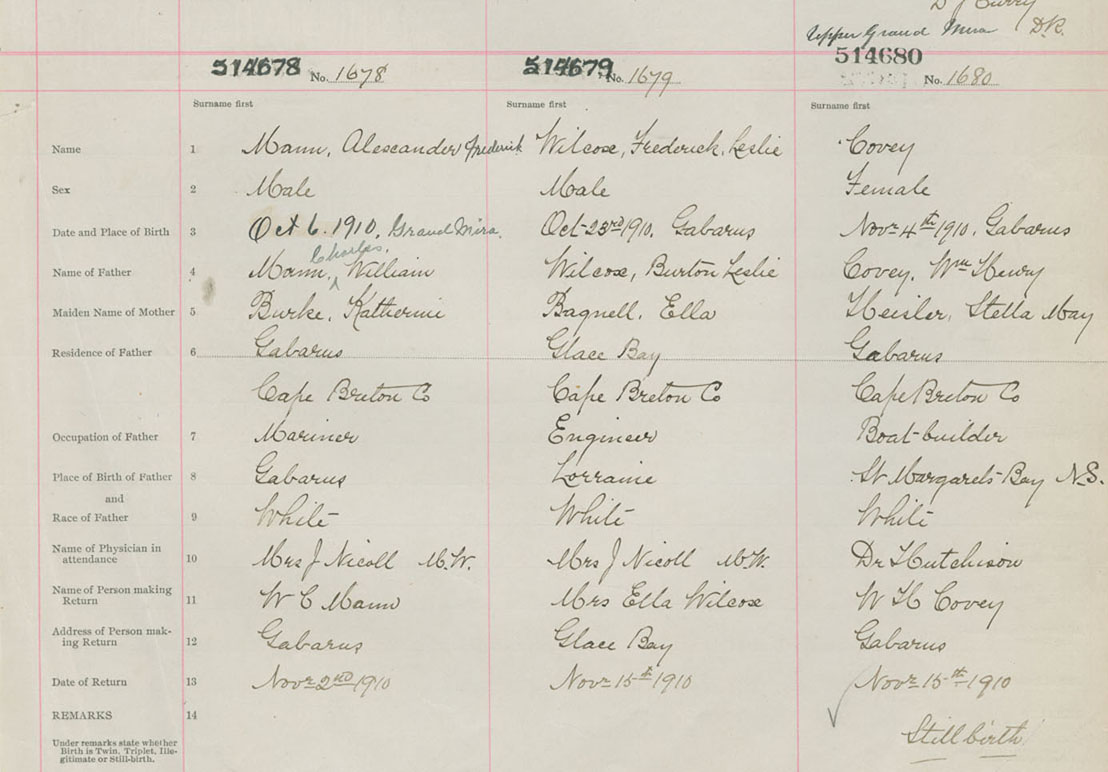 D J Curry
Upper Grand Mira D.R.
514678 No. 1678 514679 No. 1679 514680 No. 1680
Surname first Surname first Surname first
Name 1 Mann, Alescander Frederick Wilcox, Frederick, Leslie Covey
Sex 2 Male Male Female
Date and Place of Birth 3 Oct 6. 1910, Grand Mira. Oct 23rd 1910. Gabarus Novr 4th 1910, Gabarus
Charles,
Name of Father 4 Mann, William Wilcox, Burton Leslie Covey, Wm Henry
Maiden Name of Mother 5 Burke, Katherine Bagnell, Ella Heisler, Stella May
Residence of Father 6 Gabarus Glace Bay Gabarus
Cape Breton Co Cape Breton Co Cape Breton Co
Occupation of Father 7 Mariner Engineer Boat-builder
Place of Birth of Father 8 Gabarus Lorraine St Margarets Bay N.S.
and
Race of Father 9 White White White
Name of Physician in
attendance 10 Mrs J Nicoll M.W. Mrs J Nicoll M.W. Dr Hutchison
Name of Person making
Return 11 W C Mann Mrs Ella Wilcox W H Covey
Address of Person mak-
ing Return 12 Gabarus Glace Bay Gabarus
Date of Return 13 Novr 2nd 1910 Novr 15th 1910 Novr 15th 1910
REMARKS 14
Still birth
Under remarks state whether
Birth is Twin, Triplet, Ille-
gitimate or Still-birth.